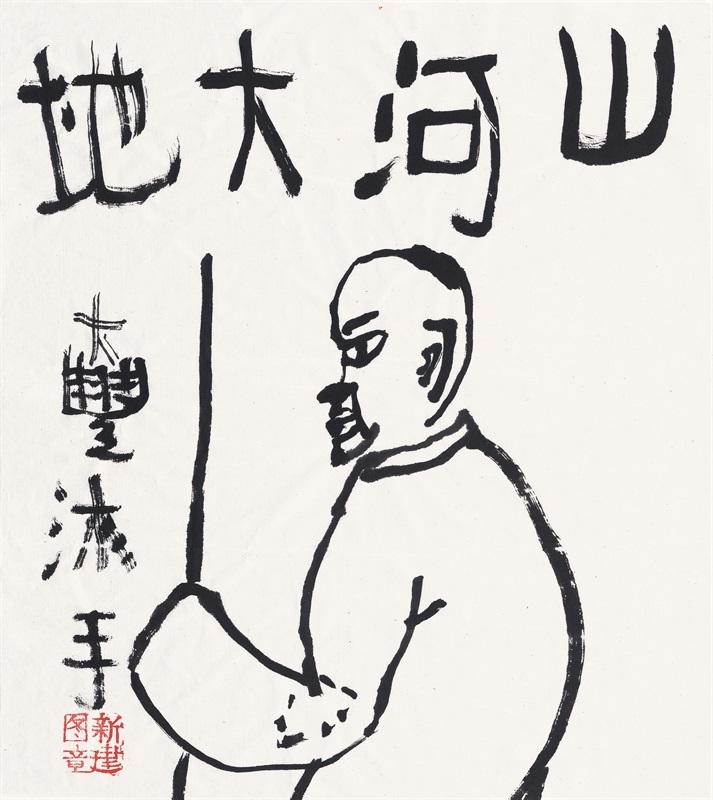 山河大地
大豐沐手
新建
图章